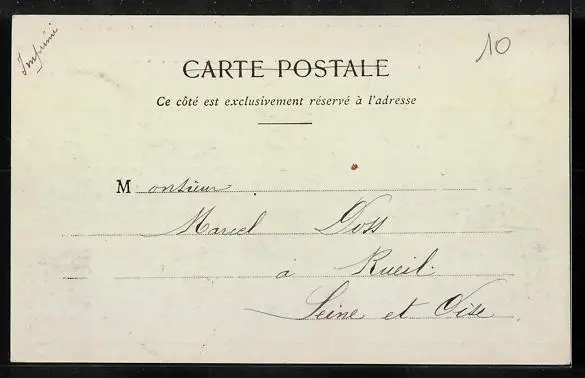 Imprimé
10
CARTE POSTALE
Ce côté est exclusivement réservé à l'adresse
Monsieur
Marcel Doss
à Rueil
Seine et Oise